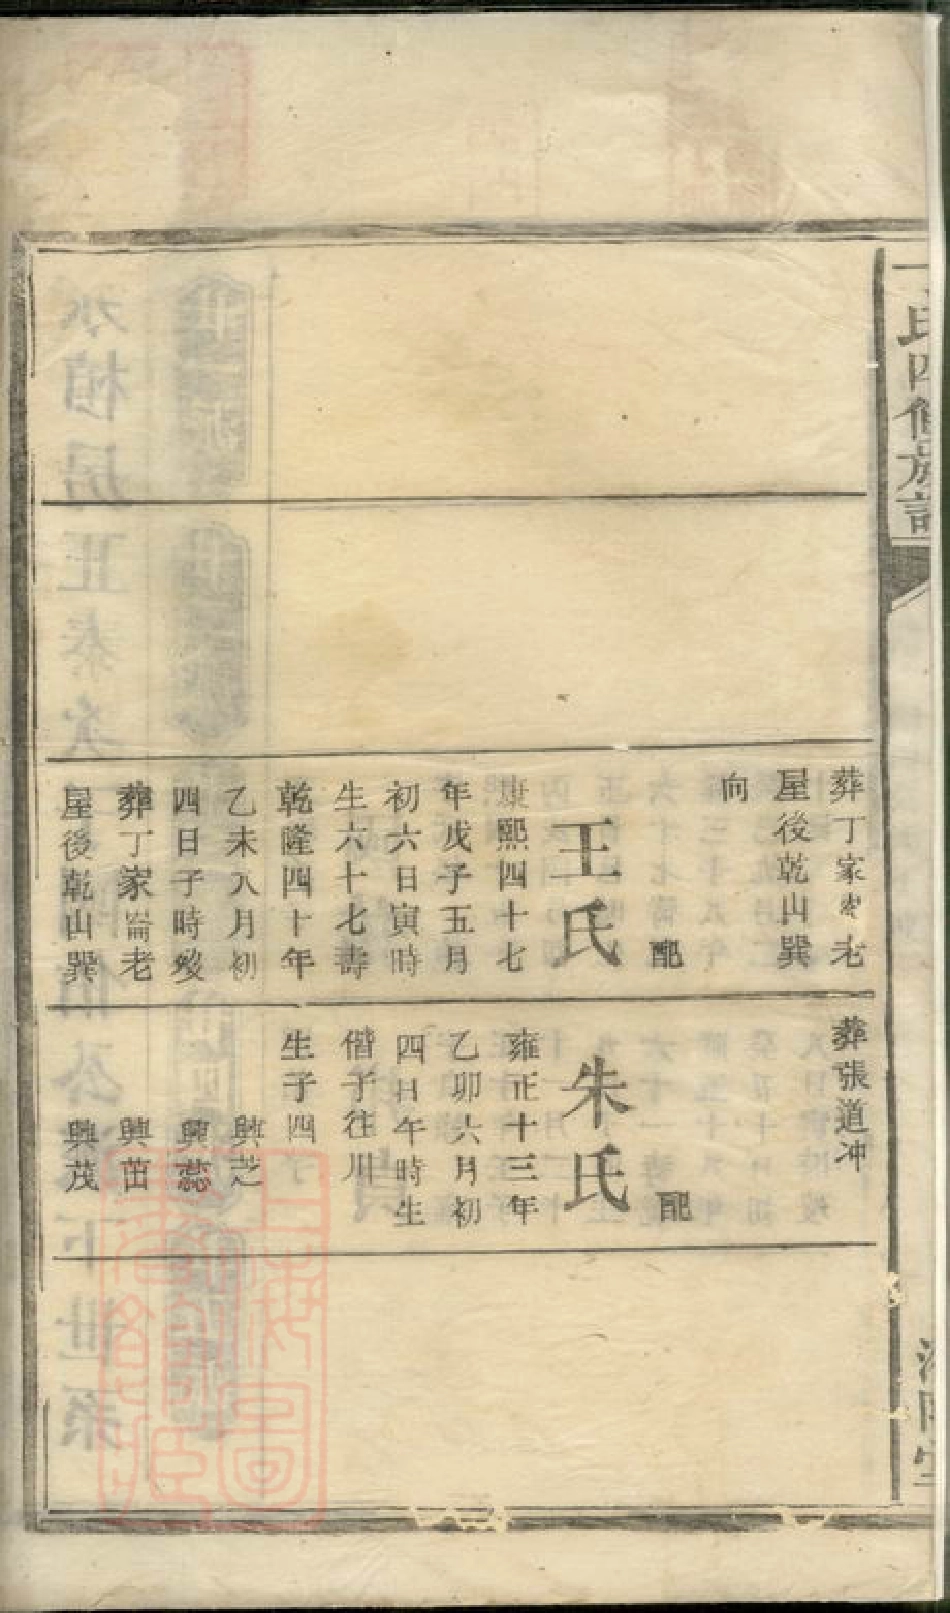 氏四修族譜
葬丁家
老
屋後乾山巽
向
配
王氏
康熙四十七
年戊子五月
初六日寅時
生六十七壽
乾隆四十年
乙未八月初
四日子時歿
葬丁家崙老
屋後乾山巽
葬張道冲
配
朱氏
雍正十三年
乙卯六月初
四日午時生
偕子往川
生子四
興芝
興蕊
興茁
興茂